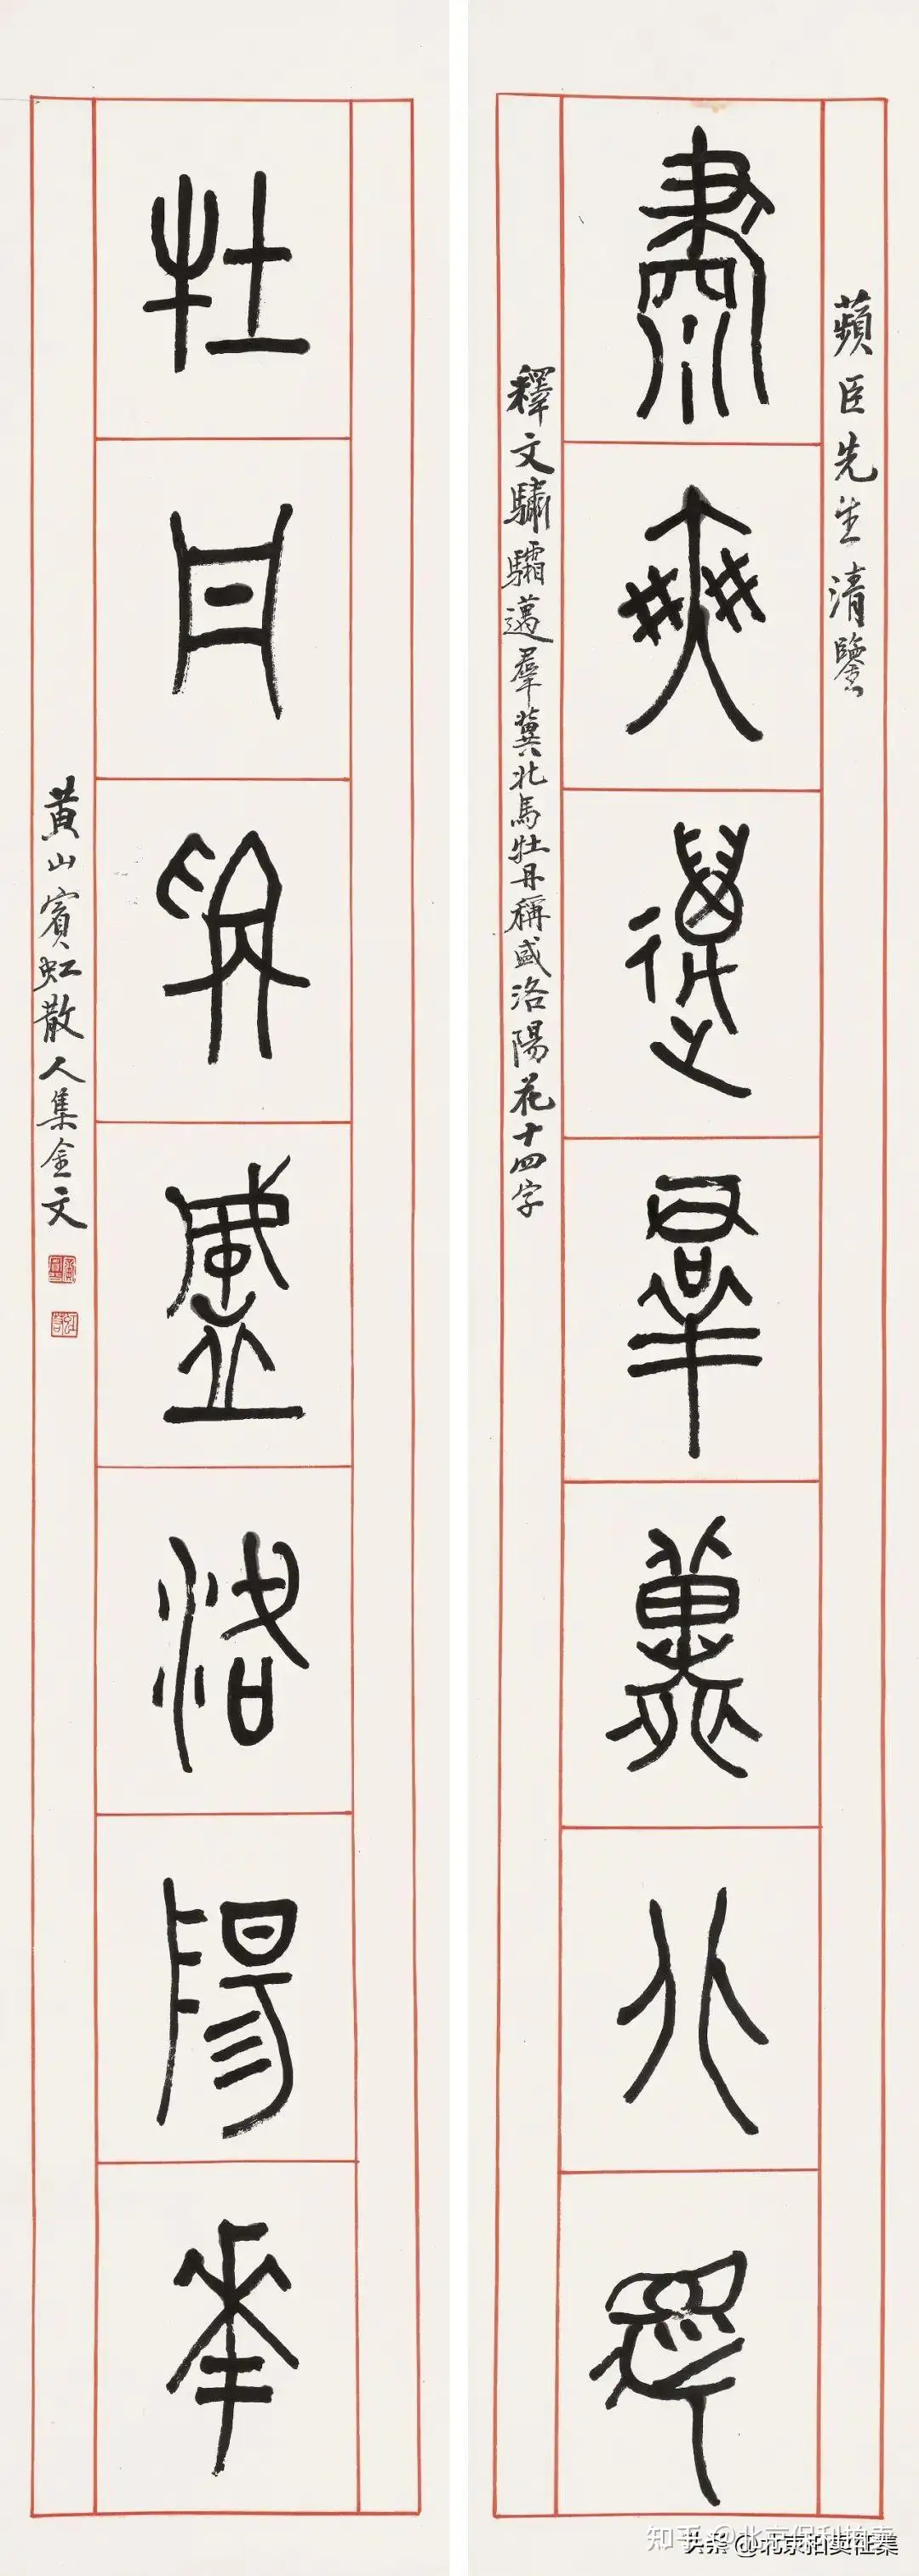 蘋臣先生清鑒
肅爽邁羣冀北馬
釋文驌驦邁羣冀北馬牡丹稱盛洛陽花十四字
牡丹爯盛洛陽華
黃山賓虹散人集金文
知乎 @北京保利拍卖
头条 @北京拍卖征集